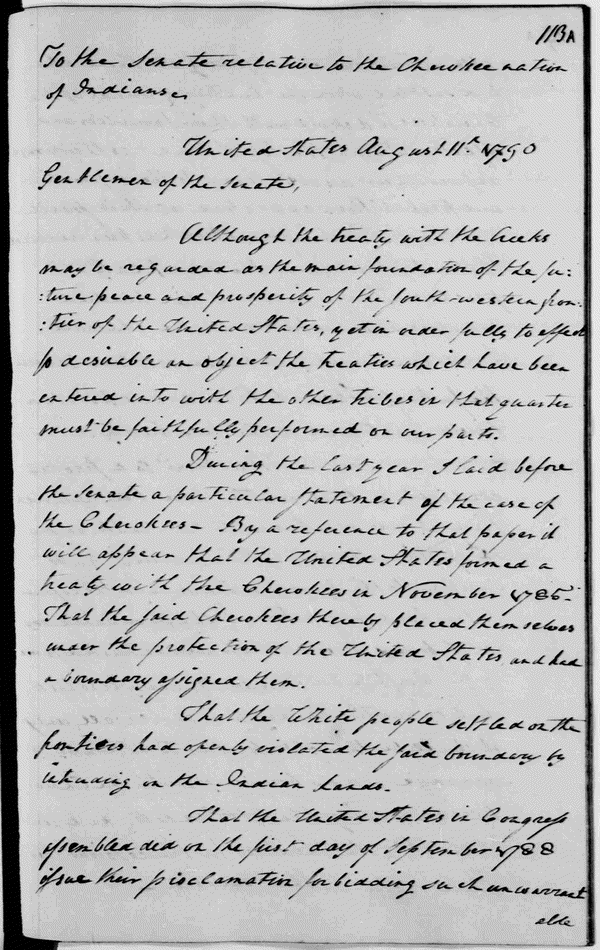 113A
To the Senate relative to the Cherokee nation
of Indians.
United States August 11th 1790
Gentlemen of the Senate,
Although the treaty with the Creeks
may be regarded as the main foundation of the fu:
:ture peace and prosperity of the South-western fron:
:tier of the United States, yet in order fully to effect
so desirable an object the treaties which have been
entered into with the other tribes in that quarter
must be faithfully performed on our parts.
During the last year I laid before
the Senate a particular statement of the case of
the Cherokees - By a reference to that paper it
will appear that the United States formed a
treaty with the Cherokees in November 1785 -
That the said Cherokees thereby placed themselves
under the protection of the United States and had
a boundary assigned them.
That the White people settled on the
frontiers had openly violated the said boundary by
intruding on the Indian Lands.
That the United States in Congress
assembled did on the first day of September 1788
issue their proclamation forbidding such unwarrant
able